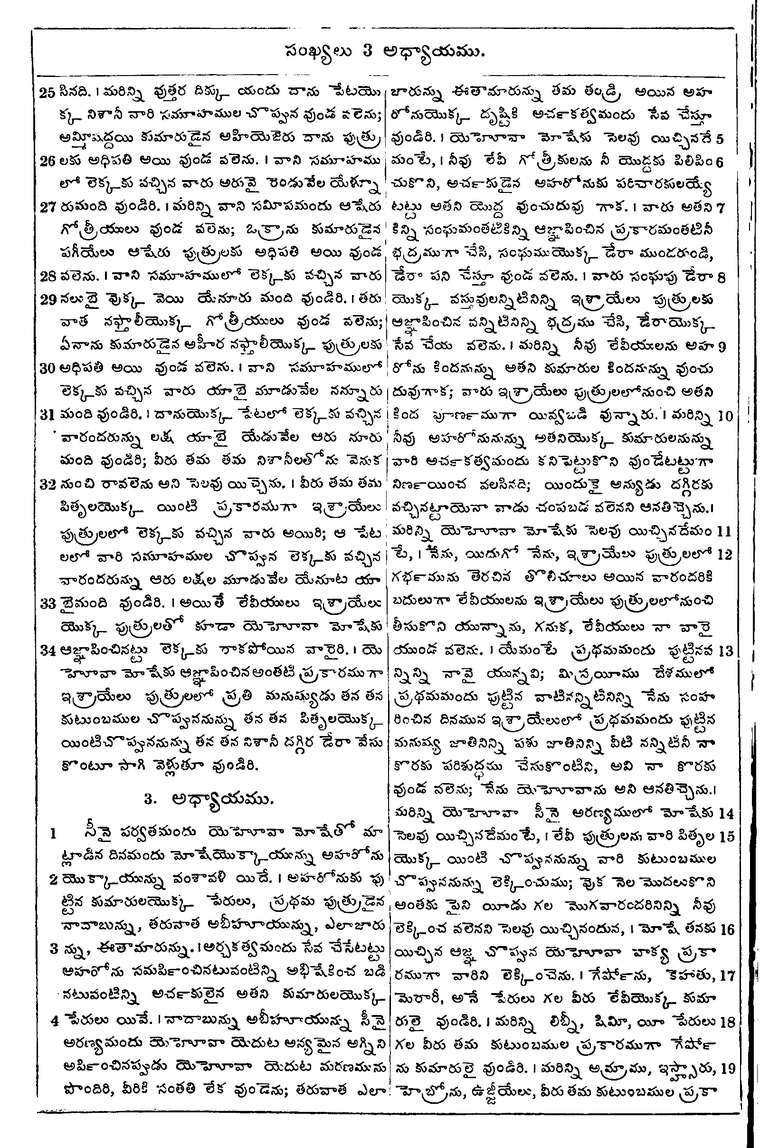 సంఖ్యలు 3 అధ్యాయము.
25 సినది. । మరిన్ని వుత్తర దిక్కు యందు దాను పేటయొ
క్క నిశానీ వారి సమూహముల చొప్పున వుండ వలెను;
అమ్మిషద్దయి కుమారుడైన అహియెజెరు దాను పుత్రు
26 లకు అధిపతి అయి వుండ వలెను. । వాని సమూహము
లో లెక్కకు వచ్చిన వారు అరువై రెండువేల యేళ్నూ
27 రుమంది వుండిరి. । మరిన్ని వాని సమీపమందు ఆషేరు
గోత్రీయులు వుండ వలెను; ఒక్రాను కుమారుడైన
పగీయేలు ఆషేరు పుత్రులకు అధిపతి అయి వుండ
28 వలెను. । వాని సమూహములో లెక్కకు వచ్చిన వారు
29 నలుబై వుక్క వెయి యేనూరు మంది వుండిరి. । తరు
వాత నఫ్తాలీయొక్క గోత్రీయులు వుండ వలెను;
ఏనాను కుమారుడైన అహీర నఫ్తాలీయొక్క పుత్రులకు
30 అధిపతి అయి వుండ వలెను. । వాని సమూహములో
లెక్కకు వచ్చిన వారు యాబై మూడువేల నన్నూరు
31 మంది వుండిరి. । దానుయొక్క పేటలో లెక్కకు వచ్చిన
వారందరున్ను లక్ష యాబై యేడువేల ఆరు నూరు
మంది వుండిరి; వీరు తమ తమ నిశానీలతోను వెనుక
32 నుంచి రావలెను అని సెలవు యిచ్చెను. । వీరు తమ తమ
పితృలయొక్క యింటి ప్రకారముగా ఇశ్రాయేలు
పుత్రులలో లెక్కకు వచ్చిన వారు అయిరి; ఆ పేట
లలో వారి సమూహముల చొప్పున లెక్కకు వచ్చిన
వారందరున్ను ఆరు లక్షల మూడువేల యేనూట యా
33 బైమంది వుండిరి. । అయితే లేవీయులు ఇశ్రాయేలు
యొక్క పుత్రులతో కూడా యెహోవా మోషేకు
34 ఆజ్ఞాపించినట్టు లెక్కకు రాకపోయిన వారైరి. । యె
హోవా మోషేకు ఆజ్ఞాపించిన అంతటి ప్రకారముగా
ఇశ్రాయేలు పుత్రులలో ప్రతి మనుష్యుడు తన తన
కుటుంబముల చొప్పుననున్ను తన తన పితృలయొక్క
యింటిచొప్పుననున్ను తన తన నిశానీ దగ్గిర డేరా వేసు
కొంటూ సాగి వెళ్లుతూ వుండిరి.
3. అధ్యాయము.
1 సీనై పర్వతమందు యెహోవా మోషేతో మా
ట్లాడిన దినమందు మోషేయొక్కాయున్ను అహరోను
2 యొక్కాయున్ను వంశావళి యిదే. । అహరోనుకు పు
ట్టిన కుమారులయొక్క పేరులు, ప్రథమ పుత్రుడైన
నాదాబున్ను, తరువాత అబీహూయున్ను, ఎలాజారు
3 న్ను, ఈతామారున్ను. । అర్చకత్వమందు సేవ చేసేటట్టు
అహరోను సమర్పించినటువంటిన్ని అభిషేకించ బడి
నటువంటిన్ని అర్చకులైన అతని కుమారులయొక్క
4 పేరులు యివే. । నాదాబున్ను అబీహూయున్ను సీనై
అరణ్యమందు యెహోవా యెదుట అన్యమైన అగ్నిని
అర్పించినప్పుడు యెహోవా యెదుట మరణమును
పొందిరి, వీరికి సంతతి లేక వుండెను; తరువాత ఎలా
జారున్ను ఈతామారున్ను తమ తండ్రి అయిన అహ
రోనుయొక్క దృష్టికి అర్చకత్వమందు సేవ చేస్తూ
వుండిరి. । యెహోవా మోషేకు సెలవు యిచ్చినదే 5
మంటే, । నీవు లేవీ గోత్రీకులను నీ యొద్దకు పిలిపిం 6
చుకొని, అర్చకుడైన అహరోనుకు పరిచారకులయ్యే
టట్టు అతని యొద్ద వుంచుదువు గాక. । వారు అతని 7
కిన్ని సంఘమంతటికిన్ని ఆజ్ఞాపించిన ప్రకారమంతటినీ
భద్రముగా చేసి, సంఘముయొక్క డేరా ముందరుండి,
డేరా పని చేస్తూ వుండ వలెను. । వారు సంఘపు డేరా 8
యొక్క వస్తువులన్నిటినిన్ని ఇశ్రాయేలు పుత్రులకు
ఆజ్ఞాపించిన వన్నిటినిన్ని భద్రము చేసి, డేరాయొక్క
సేవ చేయ వలెను. । మరిన్ని నీవు లేవీయులను అహ 9
రోను కిందనున్ను అతని కుమారుల కిందనున్ను వుంచు
దువుగాక; వారు ఇశ్రాయేలు పుత్రులలోనుంచి అతని
కింద పూర్ణముగా యివ్వబడి వున్నారు. । మరిన్ని 10
నీవు అహరోనునున్ను అతనియొక్క కుమారులనున్ను
వారి అర్చకత్వమందు కనిపెట్టుకొని వుండేటట్టుగా
నిర్ణయించ వలసినది; యిందుకై అన్యుడు దగ్గిరకు
వచ్చినట్టాయెనా వాడు చంపబడ వలెనని ఆనతిచ్చెను. ।
మరిన్ని యెహోవా మోషేకు సెలవు యిచ్చినదేమం 11
టే, । నేను, యిదుగో నేను, ఇశ్రాయేలు పుత్రులలో 12
గర్భమును తెరచిన తొలిచూలు అయిన వారందరికి
బదులుగా లేవీయులను ఇశ్రాయేలు పుత్రులలోనుంచి
తీసుకొని యున్నాను, గనుక, లేవీయులు నా వారై
యుండ వలెను. । యేమంటే ప్రథమమందు పుట్టినవ 13
న్నిన్ని నావై యున్నవి; మిస్రయీము దేశములో
ప్రథమమందు పుట్టిన వాటినన్నిటినిన్ని నేను సంహ
రించిన దినమున ఇశ్రాయేలులో ప్రథమమందు పుట్టిన
మనుష్య జాతినిన్ని పశు జాతినిన్ని వీటి నన్నిటినీ నా
కొరకు పరిశుద్ధము చేసుకొంటిని, అవి నా కొరకు
వుండ వలెను; నేను యెహోవాను అని ఆనతిచ్చెను. ।
మరిన్ని యెహోవా సీనై అరణ్యములో మోషేకు 14
సెలవు యిచ్చినదేమంటే, । లేవీ పుత్రులను వారి పితృల 15
యొక్క యింటి చొప్పుననున్ను వారి కుటుంబముల
చొప్పుననున్ను లెక్కించుము; వుక నెల మొదలుకొని
అంతకు పైని యీడు గల మొగవారందరినిన్ని నీవు
లెక్కించ వలెనని సెలవు యిచ్చినందున, । మోషే తనకు 16
యిచ్చిన ఆజ్ఞ చొప్పున యెహోవా వాక్య ప్రకా
రముగా వారిని లెక్కించెను. । గేర్షోను, కెహాతు, 17
మెరారీ, అనే పేరులు గల వీరు లేవీయొక్క కుమా
రులై వుండిరి. । మరిన్ని లిబ్నీ, షిమీ, యీ పేరులు 18
గల వీరు తమ కుటుంబముల ప్రకారముగా గేర్షో
ను కుమారులై వుండిరి. । మరిన్ని అమ్రాము, ఇస్హారు, 19
హెబ్రోను, ఉజ్జీయేలు, వీరు తమ కుటుంబముల ప్రకా